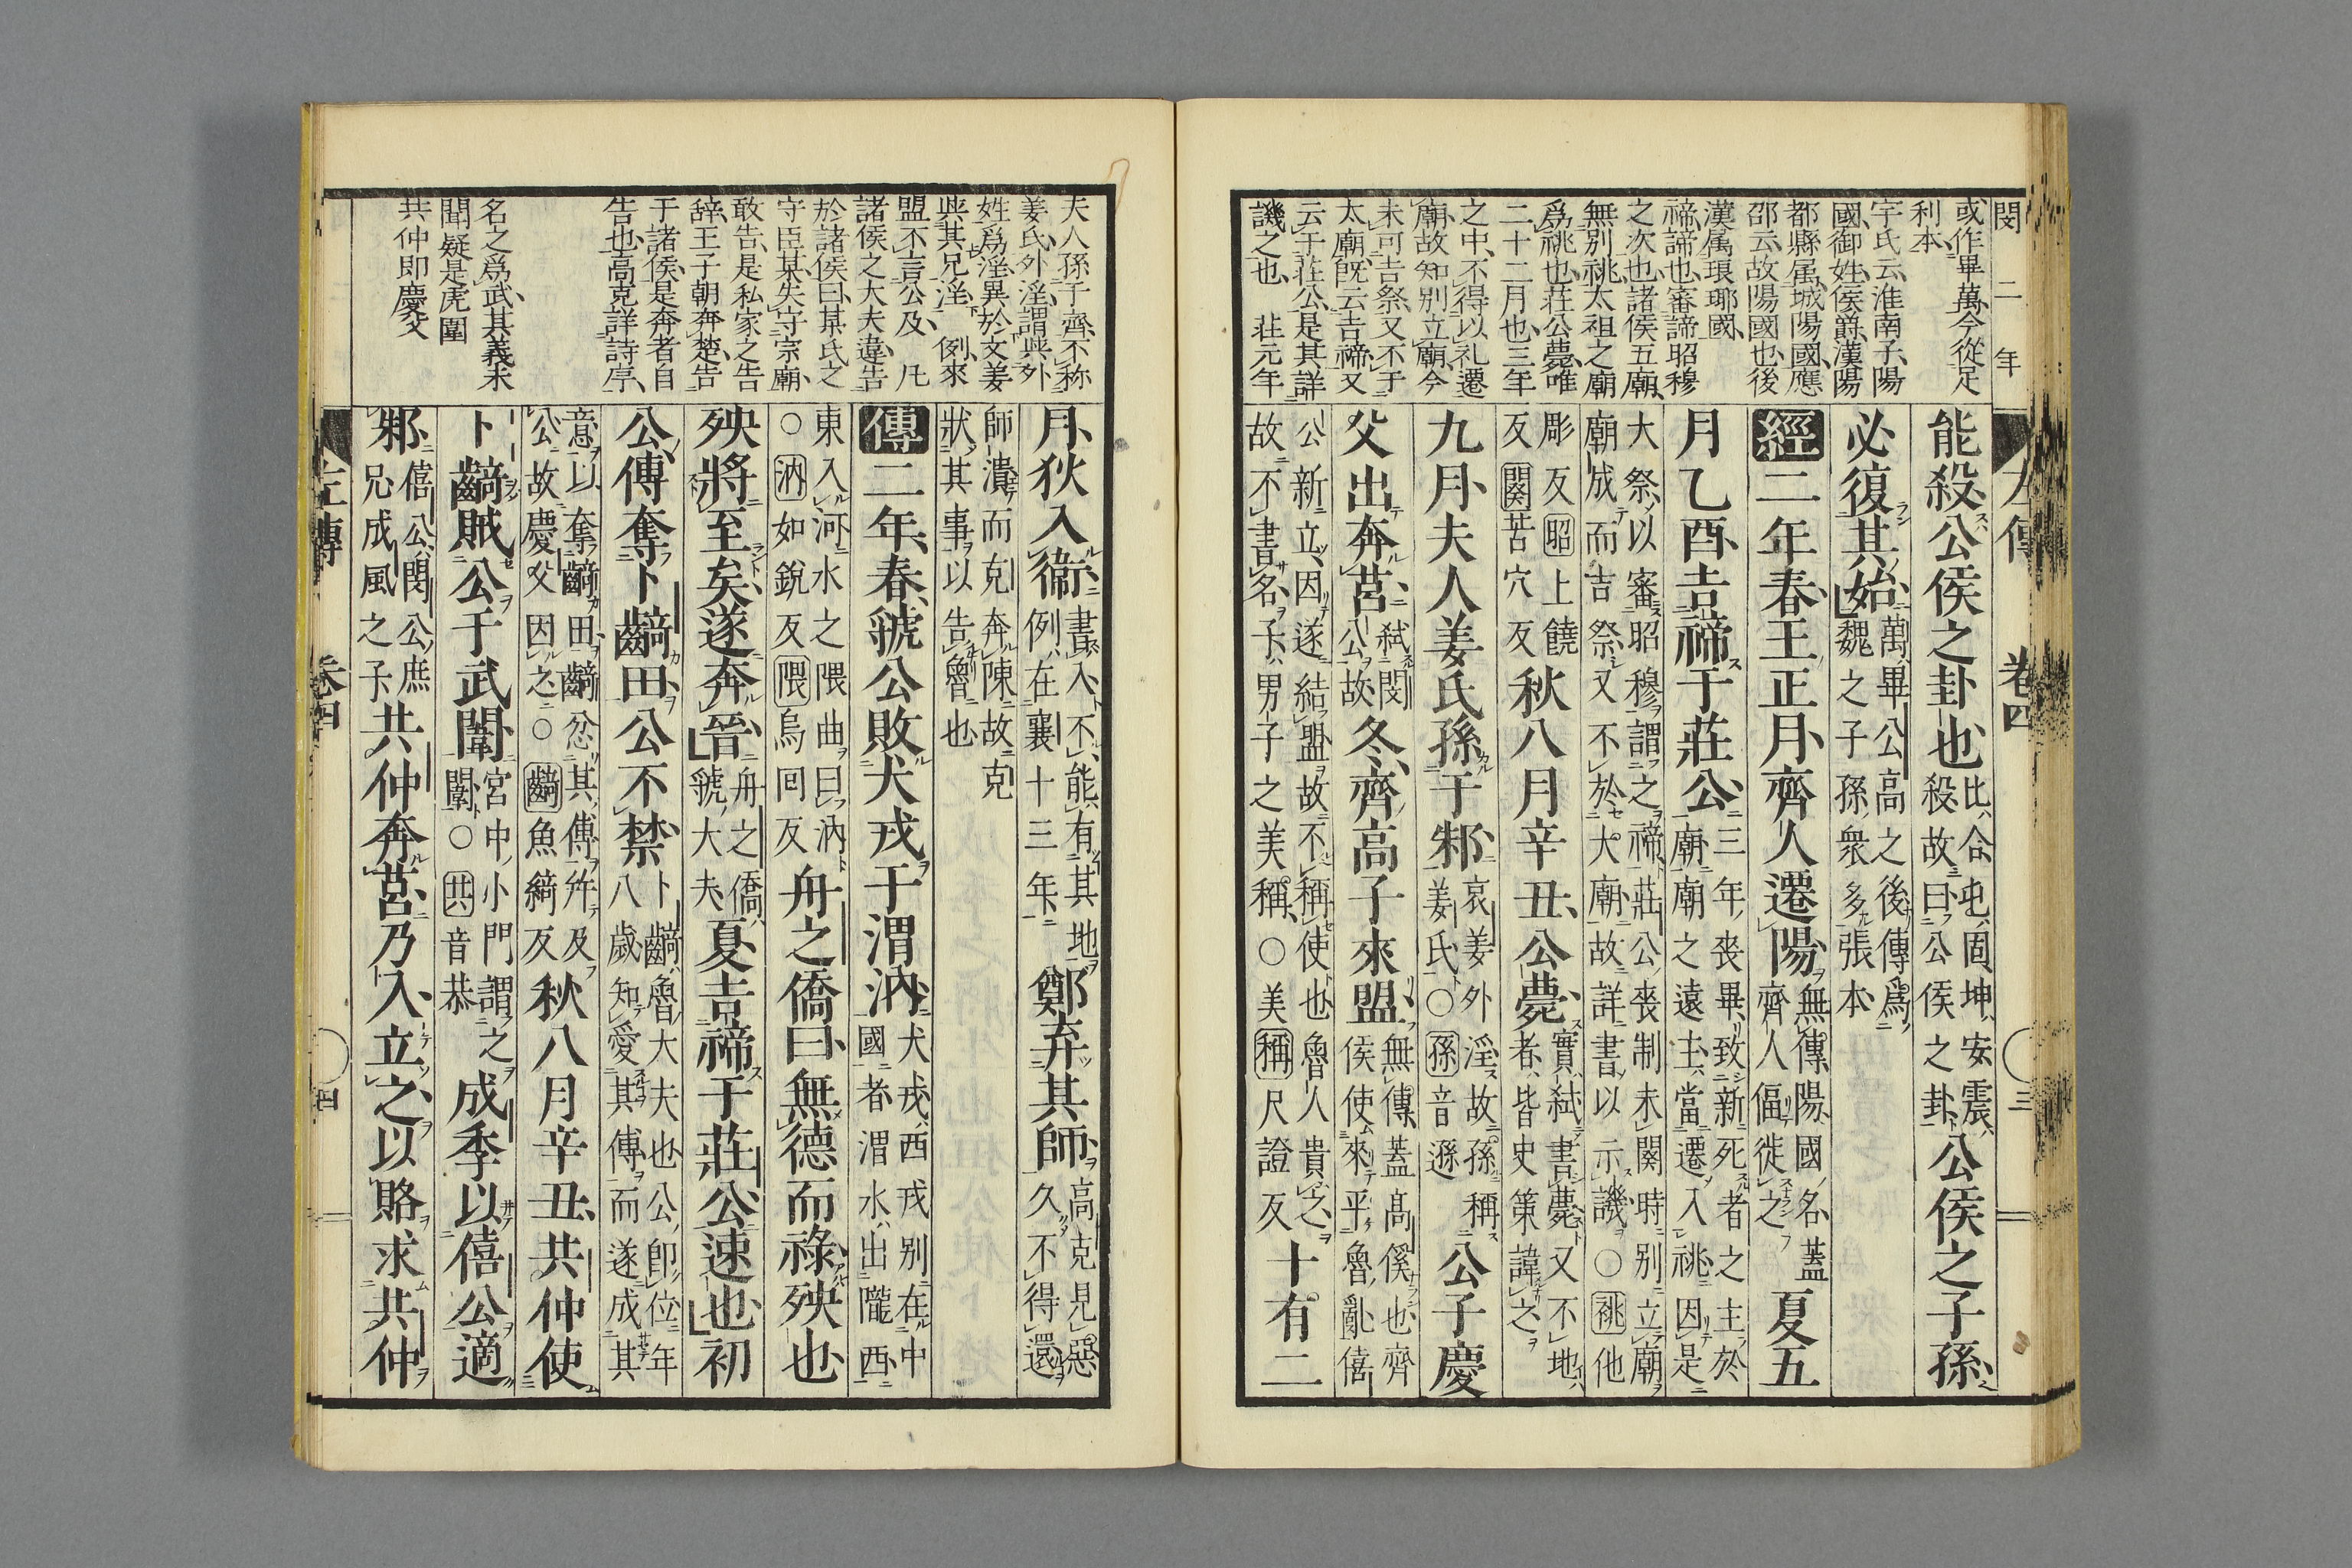 閔二年
左傳 卷四 三
或作畢萬今從足
利本
宇氏云淮南子陽
國御姓侯爵漢陽
都縣属城陽國應
邵云故陽國也後
漢属琅瑘國
禘諦也審諦昭穆
之次也諸侯五廟
無別祧太祖之廟
爲祧也莊公薨唯
二十二月也三年
之中不得以礼遷
廟故知別立廟今
未可吉祭又不于
太廟既云吉禘又
云于莊公是其詳
譏之也 莊元年
能殺公侯之卦也比合屯固坤安震殺故曰公侯之卦公侯之子孫
必復其始萬畢公高之後傳爲魏之子孫衆多張本
經二年春王正月齊人遷陽無傳陽國名蓋齊人偪徙之夏五
月乙酉吉禘于莊公三年喪畢致新死者之主於廟廟之遠主當遷入祧因是
大祭以審昭穆謂之禘莊公喪制未闋時別立廟廟成而吉祭又不於大廟故詳書以示譏○祧他
彫反昭上饒反闋苦穴反秋八月辛丑公薨實弒書薨又不地者皆史策諱之
九月夫人姜氏孫于邾哀姜外淫故孫稱姜氏○孫音遜公子慶
父出奔莒弒閔公故冬齊高子來盟無傳蓋高傒也齊侯使來平魯亂僖
公新立因遂結盟故不稱使也魯人貴之故不書名子男子之美稱○美稱尺證反十有二
月狄入衛書入不能有其地例在襄十三年鄭弃其師高克見惡久不得還
師潰而克奔陳故克狀其事以告魯也
傳二年春虢公敗犬戎于渭汭犬戎西戎別在中國者渭水出隴西
東入河水之隈曲曰汭○汭如銳反隈烏囘反舟之僑曰無德而祿殃也
殃將至矣遂奔晉舟之僑虢大夫夏吉禘于莊公速也初
公傅奪卜齮田公不禁卜齮魯大夫也公即位年八歲知愛其傅而遂成其
意以奪齮田齮忿其傅并及公故慶父因之○齮魚綺反秋八月辛丑共仲使
卜齮賊公于武闈宮中小門謂之闈○共音恭成季以僖公適
邾僖公閔公庶兄成風之子共仲奔莒乃入立之以賂求共仲
夫人孫于齊不称
姜氏外淫謂與外
姓爲淫異於文姜
與其兄淫 例來
盟不言公及 凡
諸侯之大夫違告
於諸侯曰某氏之
守臣某失守宗廟
敢告是私家之告
辞王子朝奔楚告
于諸侯是奔者自
告也高克詳詩序
名之爲武其義未
聞疑是虎圍
共仲即慶父
左傳 卷四 四